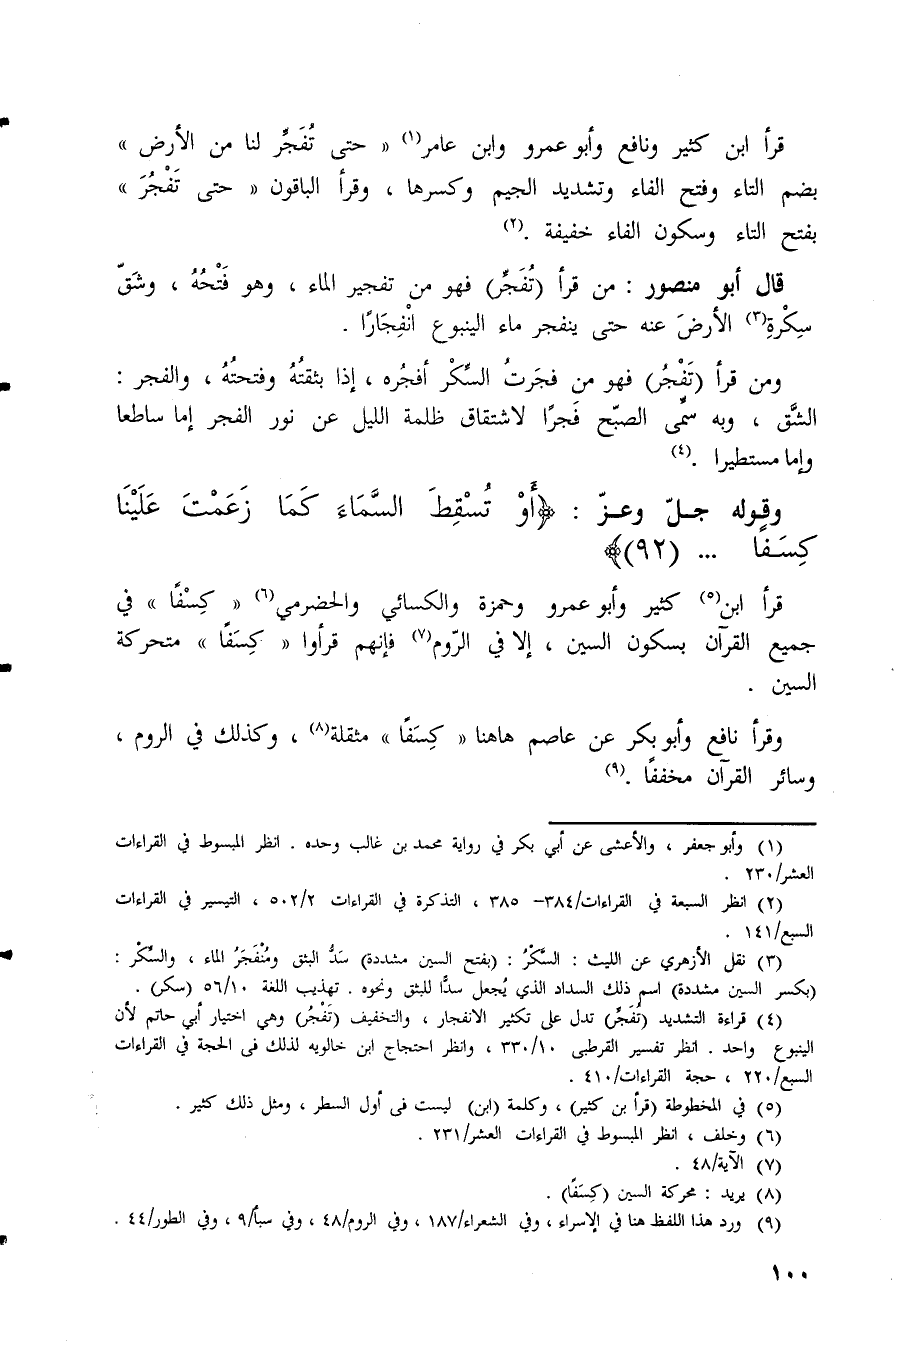 قرأ ابن كثير ونافع وأبو عمرو وابن عامر(١) « حتى تُفَجِّر لنا من الأرض »
بضم التاء وفتح الفاء وتشديد الجيم وكسرها ، وقرأ الباقون « حتى تَفْجُرَ »
بفتح التاء وسكون الفاء خفيفة .(٢)
قال أبو منصور : من قرأ (تُفَجِّر) فهو من تفجير الماء ، وهو فَتْحُهُ ، وشَقّ
سِكْرِهِ(٣) الأرضَ عنه حتى ينفجر ماء الينبوع انْفِجَارًا .
ومن قرأ (تَفْجُر) فهو من فجَرتُ السِّكْر أفجُره ، إذا بثقتُهُ وفتحتُهُ ، والفجر :
الشَّق ، وبه سمِّى الصبّح فَجرًا لاشتقاق ظلمة الليل عن نور الفجر إما ساطعا
وإما مستطيرا .(٤)
وقوله جـلّ وعـزّ : ﴿أَوْ تُسْقِطَ السَّمَاءَ كَمَا زَعَمْتَ عَلَيْنَا
كِسَـفًا ... (٩٢)﴾
قرأ ابن(٥) كثير وأبو عمرو وحمزة والكسائي والحضرمي(٦) « كِسْفًا » في
جميع القرآن بسكون السين ، إلا في الرّوم(٧) فإنهم قرأوا « كِسَفًا » متحركة
السين .
وقرأ نافع وأبو بكر عن عاصم هاهنا « كِسَفًا » مثقلة(٨) ، وكذلك في الروم ،
وسائر القرآن مخففًا .(٩)
(١) وأبو جعفر ، والأعشى عن أبي بكر في رواية محمد بن غالب وحده . انظر المبسوط في القراءات
العشر/٢٣٠ .
(٢) انظر السبعة في القراءات/٣٨٤– ٣٨٥ ، التذكرة في القراءات ٥٠٢/٢ ، التيسير في القراءات
السبع/١٤١ .
(٣) نقل الأزهري عن الليث : السَّكْرُ : (بفتح السين مشددة) سَدُّ البثق ومُنْفَجَرُ الماء ، والسِّكْر :
(بكسر السين مشددة) اسم ذلك السداد الذي يُجعل سدًّا للبثق ونحوه . تهذيب اللغة ٥٦/١٠ (سكر) .
(٤) قراءة التشديد (تُفَجِّر) تدل على تكثير الانفجار ، والتخفيف (تَفْجُر) وهي اختيار أبي حاتم لأن
الينبوع واحد . انظر تفسير القرطبى ٣٣٠/١٠ ، وانظر احتجاج ابن خالويه لذلك فى الحجة في القراءات
السبع/٢٢٠ ، حجة القراءات/٤١٠ .
(٥) في المخطوطة (قرأ بن كثير) ، وكلمة (ابن) ليست فى أول السطر ، ومثل ذلك كثير .
(٦) وخلف ، انظر المبسوط في القراءات العشر/٢٣١ .
(٧) الآية/٤٨ .
(٨) يريد : محركة السين (كِسَفًا) .
(٩) ورد هذا اللفظ هنا في الإسراء ، وفي الشعراء/١٨٧ ، وفي الروم/٤٨ ، وفي سبأ/٩ ، وفي الطور/٤٤ .
١٠٠